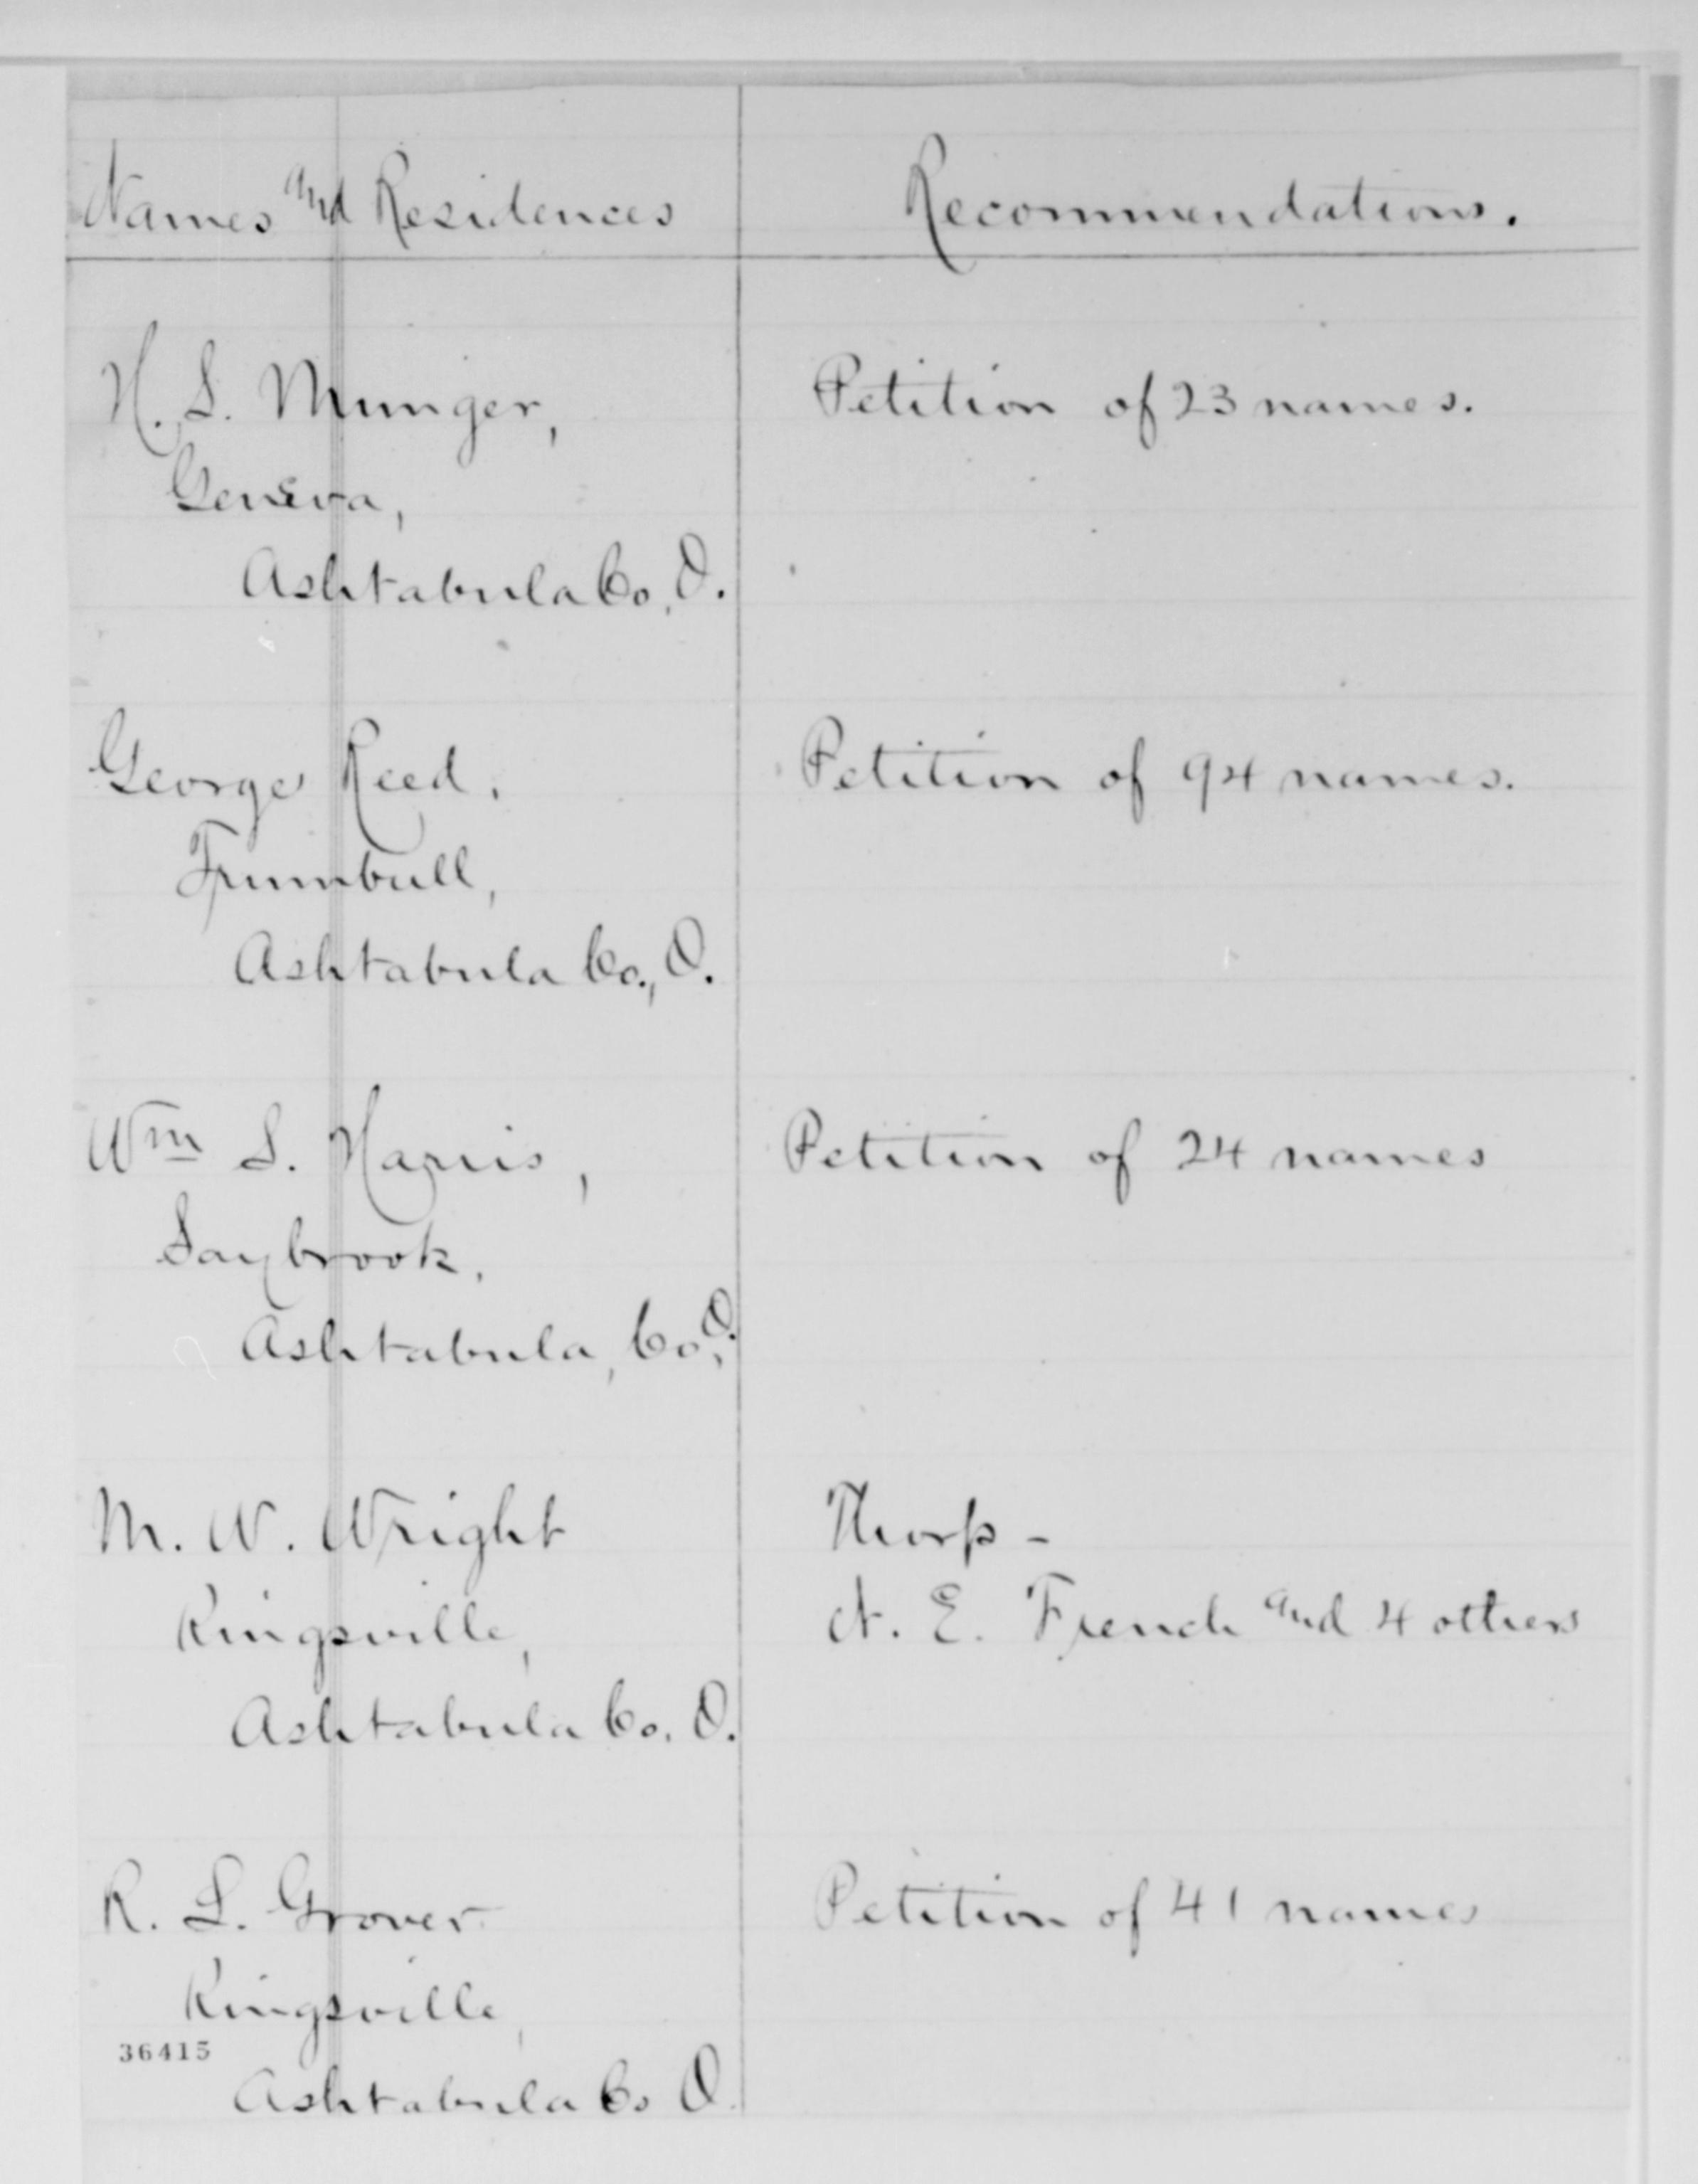 Names and Residences
Recommendations.
H. S. Munger,
Petition of 23 names.
Geneva,
Ashtabula Co, O.
George Reed,
Petition of 94 names.
Trumbull,
Ashtabula Co., O.
Wm S. Harris,
Petition of 24 names
Saybrook,
Ashtabula, Co, O.
M. W. Wright
Thorp -
Kingsville,
N. E. French and 4 others
Ashtabula Co. O.
R. L. Grover
Petition of 41 names
Kingsville,
36415
Ashtabula Co O.